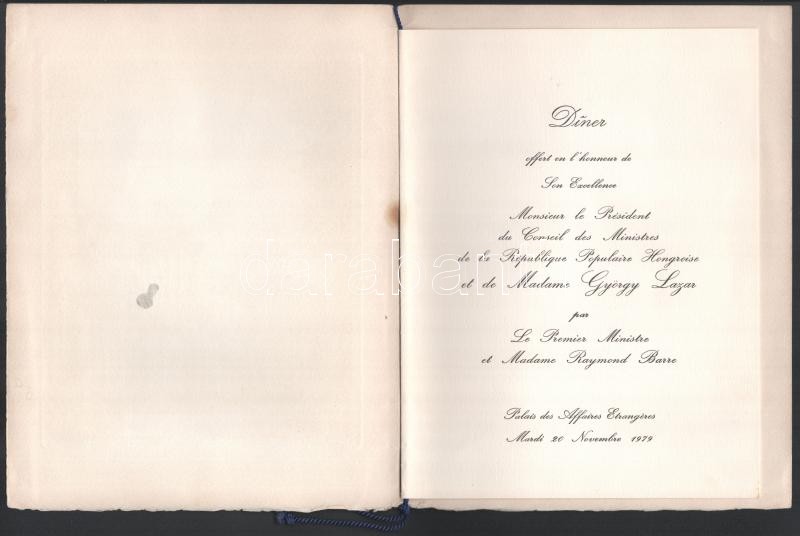 Dîner
offert en l'honneur de
Son Excellence
Monsieur le Président
du Conseil des Ministres
de la République Populaire Hongroise
et de Madame György Lazar
par
Le Premier Ministre
et Madame Raymond Barre
Palais des Affaires Etrangères
Mardi 20 Novembre 1979